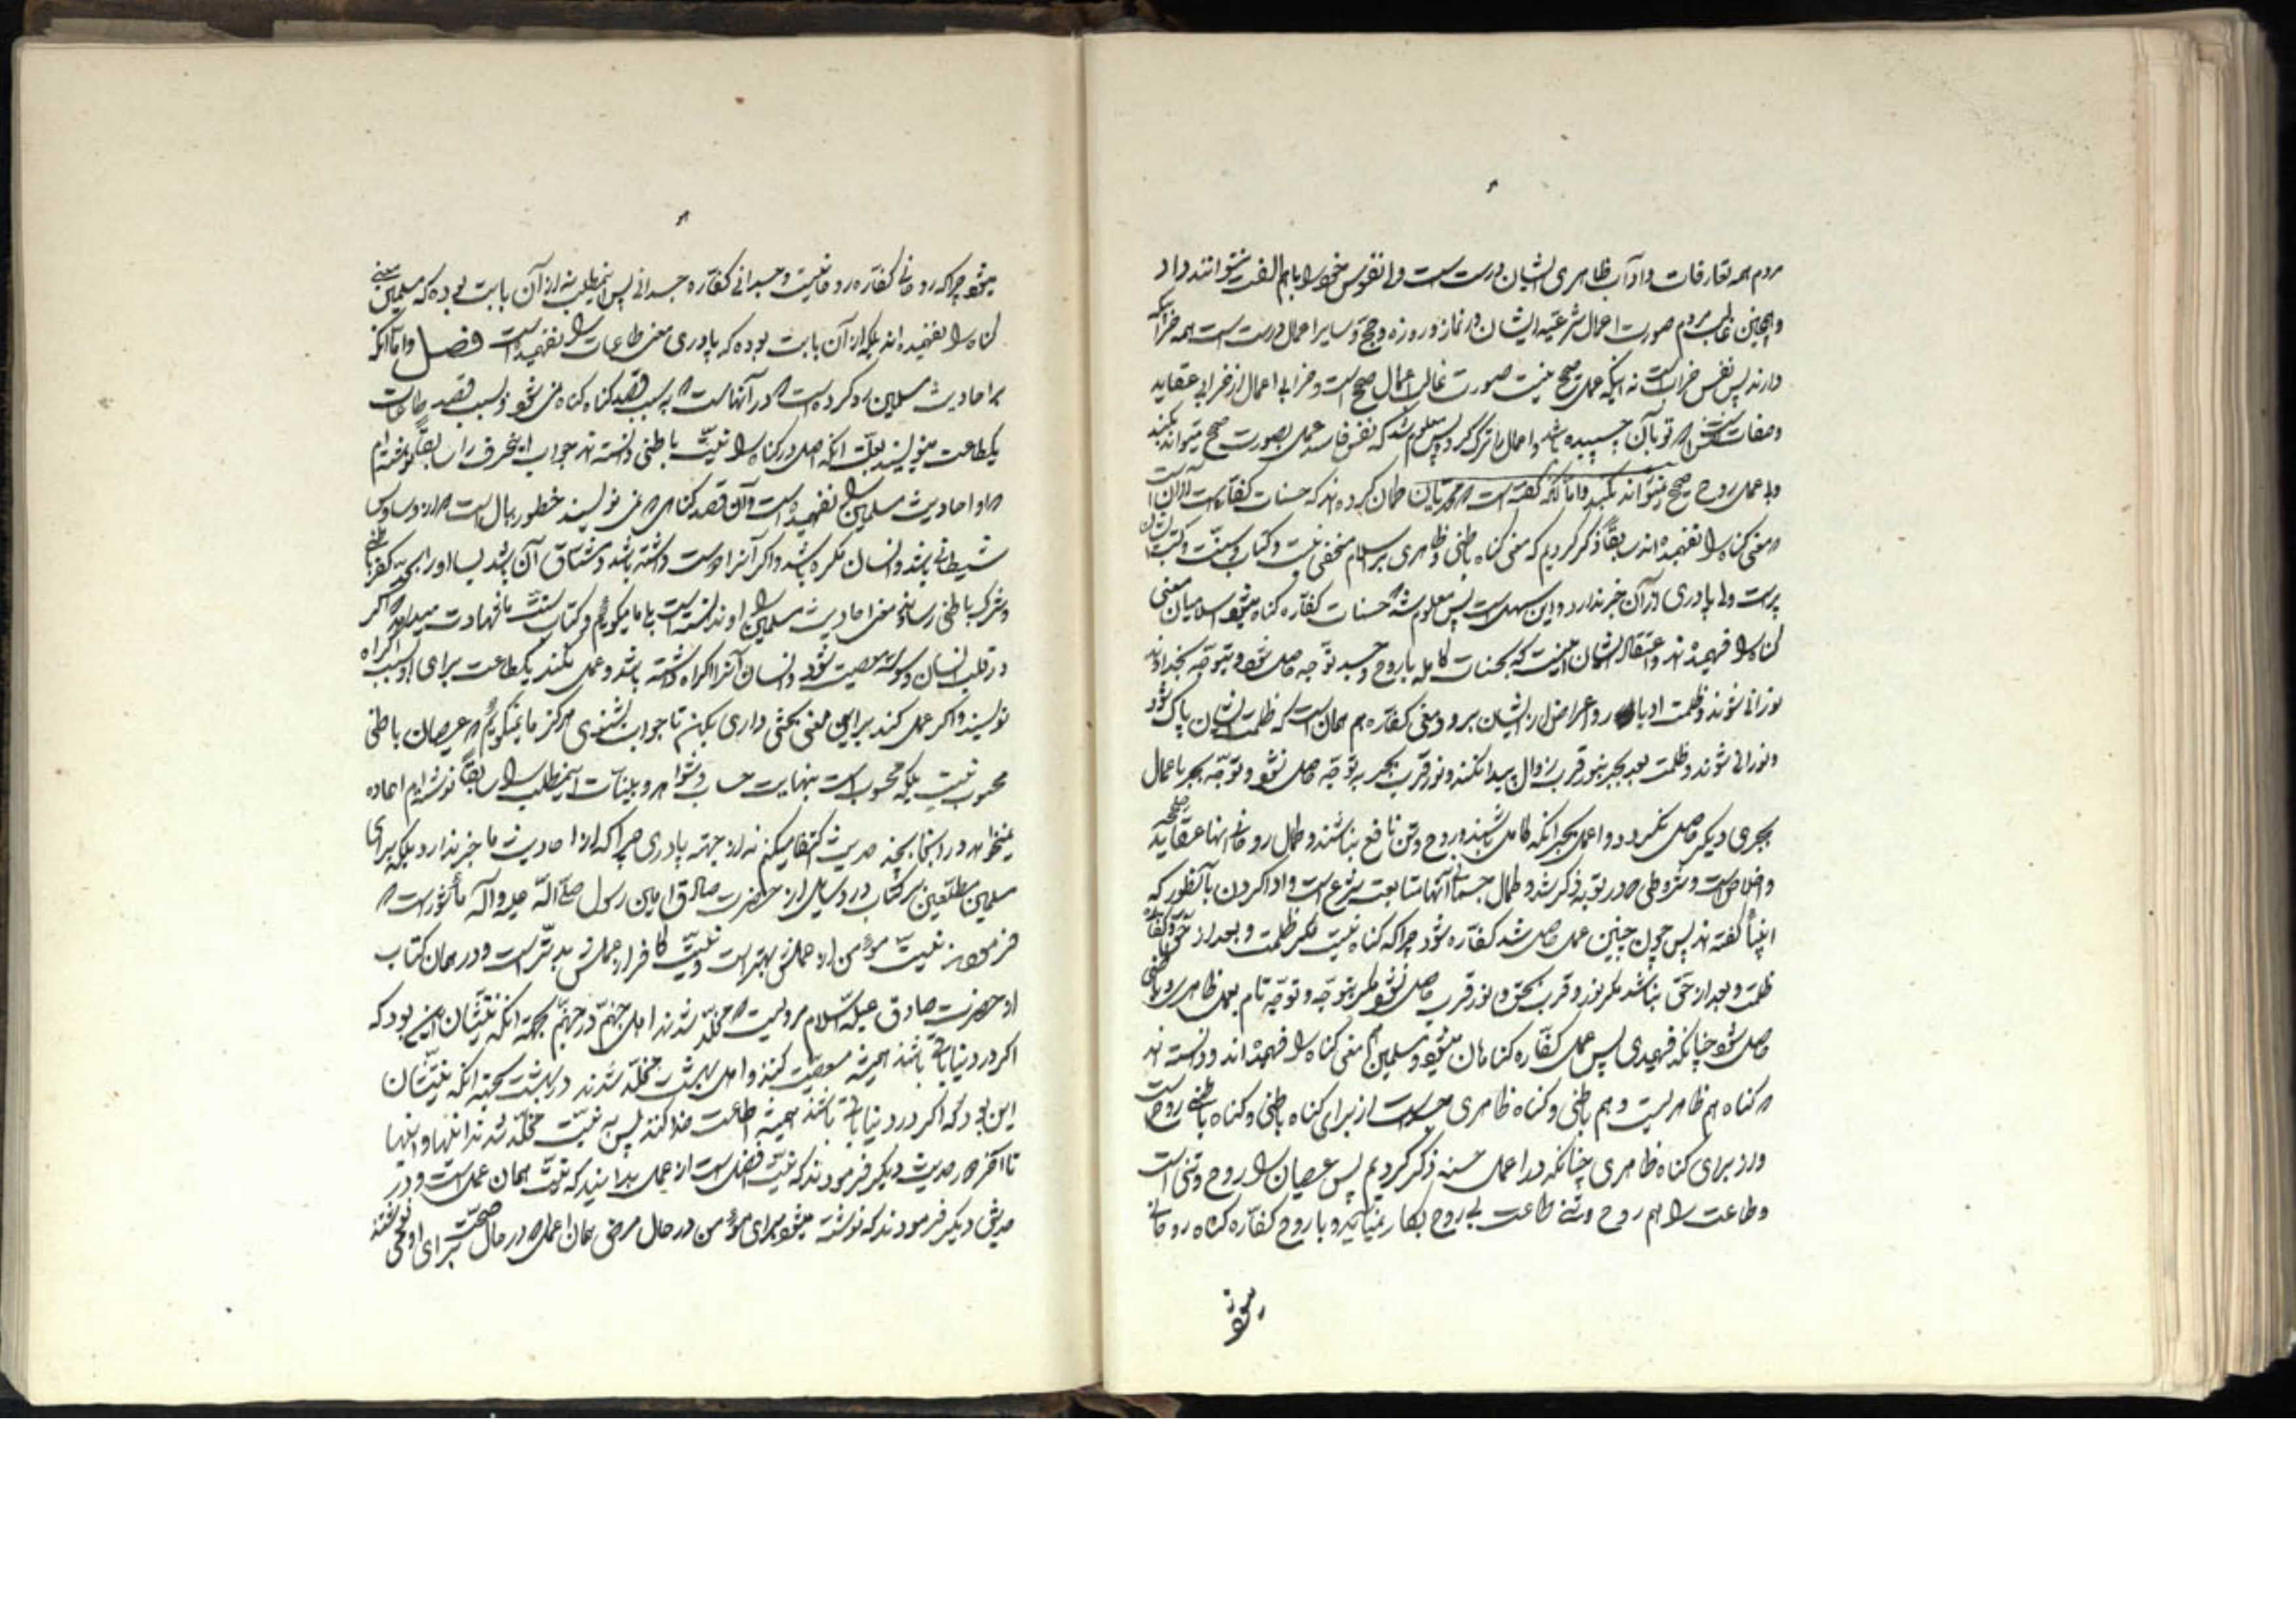 مردم همه تعارفات و آداب ظاهری ایشان درست است ولی نفوس خود را با هم الفت نتوانند داد
و همچنین غالب مردم صورت اعمال شرعیه ایشان در نماز و روزه و حج و سایر اعمال درست است همه خرابیکه
دارند پس نفس خراب است نه اینکه عمل صحیح نیست صورت غالب اعمال صحیح است و خرابی اعمال از خرابی عقاید
و صفات تو بآن چسپیده باشد و اعمال را ترک کرد پس معلوم شد که نفس فاسد عمل بصورت صحیح میتواند بکند
ولی عمل روح صحیح نمیتواند بکند و اما آنکه گفته است که محمدیان گمان کرده‌اند که حسنات کفاره است از آن است
که معنی گناه را نفهمیده‌اند سابقاً ذکر کردیم که معنی گناه باطنی و ظاهری بر اسلام مخفی نیست و کتاب و سنت و کتب ایشان
پر است ولی پادری از آن خبر ندارد و این سهل است پس معلوم شد که حسنات کفاره گناه میشود و اسلامیان معنی
گناه را فهمیده‌اند و اعتقاد ایشان اینست که بحسنات کامله با روح و جسد توجه حاصل شود و بتوجه بخداوند
نورانی شوند و ظلمت ادبار و اعراض از ایشان برود و معنی کفاره هم همان است که ظلمت ایشان پاک شود
و نورانی شوند و ظلمت بعد بجز بنور قرب زوال پیدا نکند و نور قرب بجز بتوجه حاصل نشود و توجه بجز باعمال
بچیزی دیگر حاصل نگردد و اعمال بجز آنکه کامل باشند در روح و تن نافع نباشند و کمال روحانی آنها عقاید صحیحه
و اخلاص است و شروطی که در توبه ذکر شد و کمال جسمانی آنها متابعت شرع است و ادا کردن بآنطور که
انبیا گفته‌اند پس چون چنین عمل حاصل شد کفاره شود چرا که گناه نیست مگر ظلمت و بعد از حق و کفاره
ظلمت و بعد از حق نباشد مگر نور و قرب بحق و نور قرب حاصل نشود مگر بتوجه و توجه تام بعمل ظاهری و باطنی
حاصل شود چنانکه فهمیدی پس عمل کفاره گناهان میشود و مسلمین هم معنی گناه را فهمیده‌اند و دانسته‌اند
که گناه هم ظاهریست و هم باطنی و گناه ظاهری جسد است از برای گناه باطنی و گناه باطنی روح است
از برای گناه ظاهری چنانکه در اعمال حسنه ذکر کردیم پس عصیان را روح و تنی است
و طاعت را هم روح و تنی طاعت بی روح بکار نمیاید و با روح کفاره گناه روحانی
میشود
میشود چرا که روحانی کفاره روحانیت و جسدانی کفاره جسدانی پس این مطلب نه از آن بابت بوده که مسلمین معنی
گناه را نفهمیده‌اند بلکه از آن بابت بوده که پادری معنی طاعات را نفهمیده است فصل و اما آنکه
بر احادیث مسلمین رد کرده است که در آنهاست که بسبب قصد گناه گناه نمی‌شود و بسبب قصد طاعات
یکطاعت مینویسند بعلت آنکه اصل در گناه را نیت باطنی دانسته‌اند جواب این حرف را سابقاً نوشته‌ام
که او احادیث مسلمین را نفهمیده است و آن قصد گناهی که نمی نویسند خطور ببال است که از وساوس
شیطانی باشد و انسان مکره باشد و اگر آنرا دوست داشته باشد و مشتاق آن باشد بسا او را بحد کفر باطنی
و شرک باطنی رساند معنی احادیث مسلمین را او ندانسته است با ما میگوئیم و کتاب و سنت ما شهادت میدهد که اگر
در قلب انسان وسوسه معصیت شود و انسان آنرا اکراه داشته باشد و عمل نکند یکطاعت برای او بسبب اکراه
نویسند و اگر عمل کند بر این معنی بحثی داری بکن تا جواب بشنوی هرگز ما نمیگوئیم که عصیان باطنی
محسوب نیست بلکه محسوب است بنهایت حساب و شواهد و بینات این مطلب را سابقاً نوشته‌ام اعاده
نمیخواهد در اینجا بچند حدیث اکتفا میکنم نه از جهة پادری چرا که از احادیث ما خبر ندارد بلکه برای
مسلمین مطلعین بر کتاب در وسایل از حضرت صادق امین رسول صلی الله علیه و آله مأثور است که
فرمودند نیت مؤمن از عملش بهتر است و نیت کافر از عملش بدتر است و در همان کتاب
از حضرت صادق علیه السلام مرویست که مخلد شدند اهل جهنم در جهنم بجهة آنکه نیتشان این بود که
اگر در دنیا باقی باشند همیشه معصیت کنند و اهل بهشت مخلد شدند در بهشت بجهة آنکه نیتشان
این بود که اگر در دنیا باقی باشند همیشه اطاعت خدا کنند پس به نیت مخلد شدند اینها و اینها
تا آخر در حدیث دیگر فرمودند که نیت افضل است از عمل بدانید که نیت همان عمل است و در
حدیثی دیگر فرمودند که نوشته میشود برای مؤمن در حال مرض همان اعمال که در حال صحت برای او می نوشتند